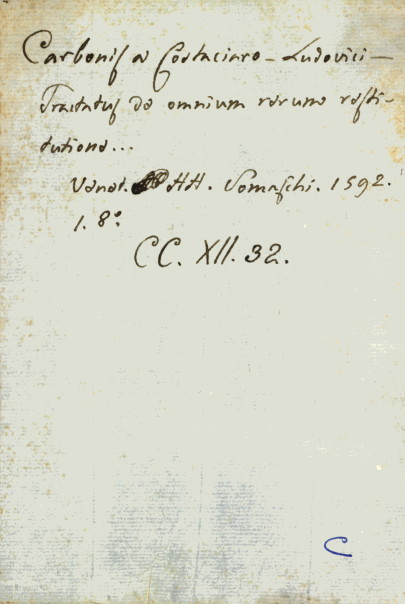 Carbonis a Costaciaro - Ludovici -
Tractatus de omnium rerum resti-
tutione...
Venet. HH. Somaschi. 1592.
1. 8º
CC. XII. 32.
C